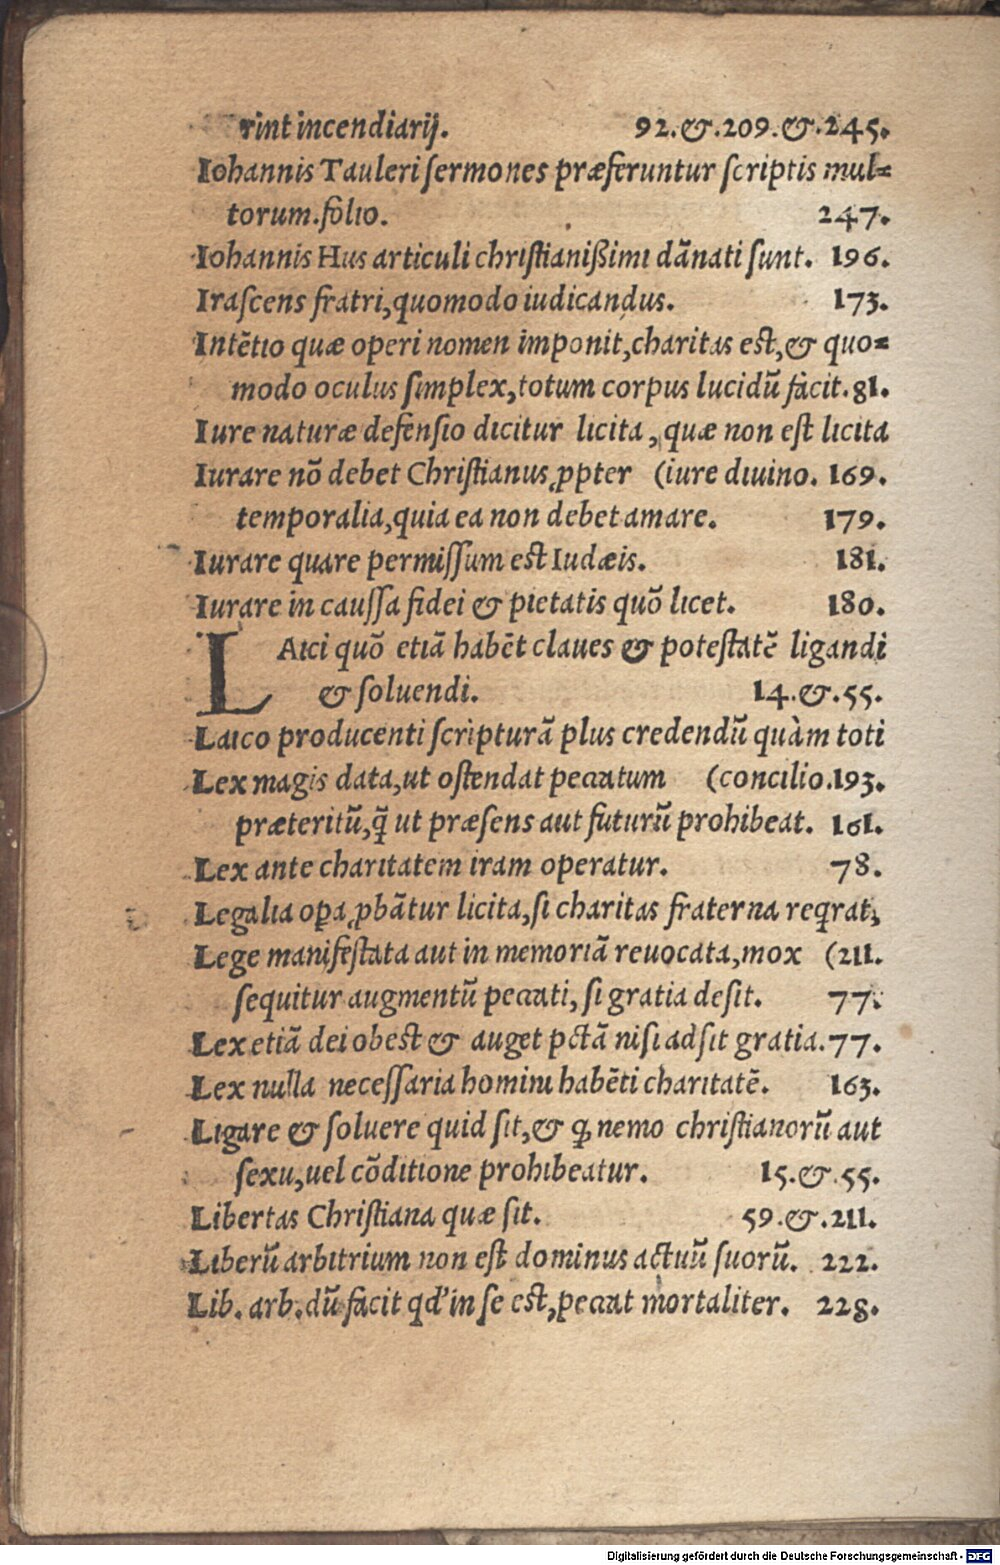 rint incendiarij. 92.&.209.&.245.
Iohannis Tauleri sermones præferuntur scriptis mul=
torum.folio. 247.
Iohannis Hus articuli christianißimi dãnati sunt. 196.
Irascens fratri,quomodo iudicandus. 173.
Intẽtio quæ operi nomen imponit,charitas est,& quo=
modo oculus simplex,totum corpus lucidũ facit.81.
Iure naturæ defensio dicitur licita,quæ non est licita
Iurare nõ debet Christianus ꝓpter (iure diuino. 169.
temporalia,quia ea non debet amare. 179.
Iurare quare permissum est Iudæis. 181.
Iurare in caussa fidei & pietatis quõ licet. 180.
LAici quõ etiã habẽt claues & potestatẽ ligandi
& soluendi. 14.&.55.
Laico producenti scripturã plus credendũ quàm toti
Lex magis data,ut ostendat peccatum (concilio.193.
præteritũ,q̃ ut præsens aut futurũ prohibeat. 161.
Lex ante charitatem iram operatur. 78.
Legalia oꝑa ꝓbãtur licita,si charitas fraterna reqrat,
Lege manifestata aut in memoriã reuocata,mox (211.
sequitur augmentũ peccati,si gratia desit. 77.
Lex etiã dei obest & auget pctã nisi adsit gratia.77.
Lex nulla necessaria homini habẽti charitatẽ. 163.
Ligare & soluere quid sit,& ꝙ nemo christianorũ aut
sexu,uel cõditione prohibeatur. 15.&.55.
Libertas Christiana quæ sit. 59.&.211.
Liberũ arbitrium non est dominus actuũ suorũ. 222.
Lib. arb.dũ facit qd' in se est,peccat mortaliter. 228.
Digitalisierung gefördert durch die Deutsche Forschungsgemeinschaft - DFG